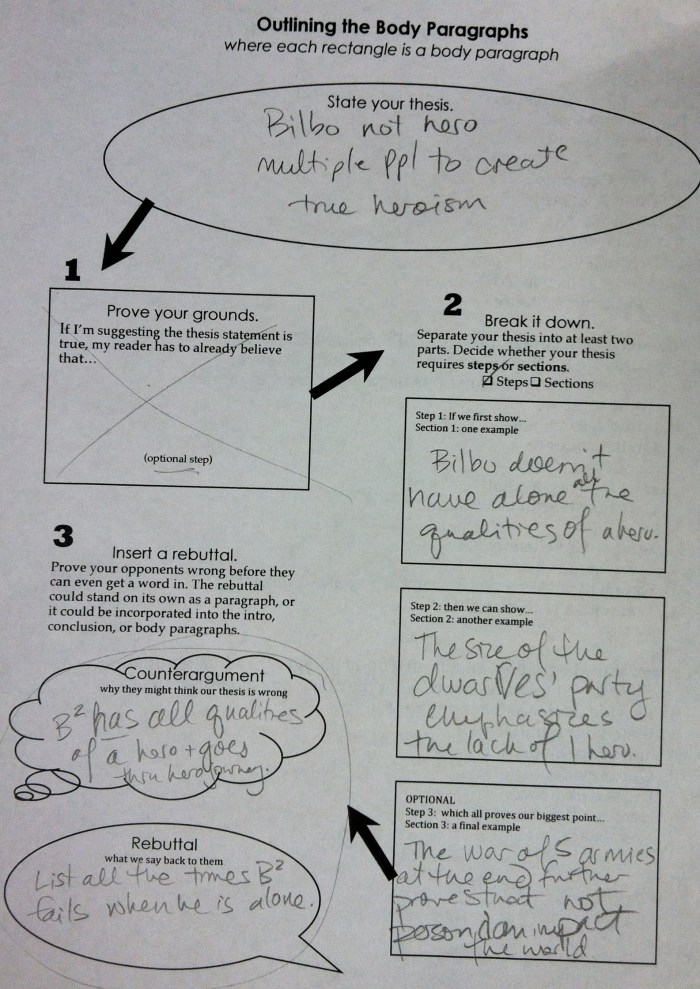 Outlining the Body Paragraphs
where each rectangle is a body paragraph
State your thesis.
Bilbo not hero
multiple ppl to create
true heroism
1
Prove your grounds.
If I'm suggesting the thesis statement is
true, my reader has to already believe
that...
(optional step)
2
Break it down.
Separate your thesis into at least two
parts. Decide whether your thesis
requires steps or sections.
☑ Steps ☐ Sections
Step 1: If we first show...
Section 1: one example
Bilbo doesn't
have alone all the
qualities of a hero.
Step 2: then we can show...
Section 2: another example
The size of the
dwarves' party
emphasizes
the lack of 1 hero.
OPTIONAL
Step 3: which all proves our biggest point...
Section 3: a final example
The war of 5 armies
at the end further
proves that not
person can impact
the world
3
Insert a rebuttal.
Prove your opponents wrong before they
can even get a word in. The rebuttal
could stand on its own as a paragraph, or
it could be incorporated into the intro,
conclusion, or body paragraphs.
Counterargument
why they might think our thesis is wrong
B² has all qualities
of a hero + goes
thru hero journey.
Rebuttal
what we say back to them
List all the times B²
fails when he is alone.